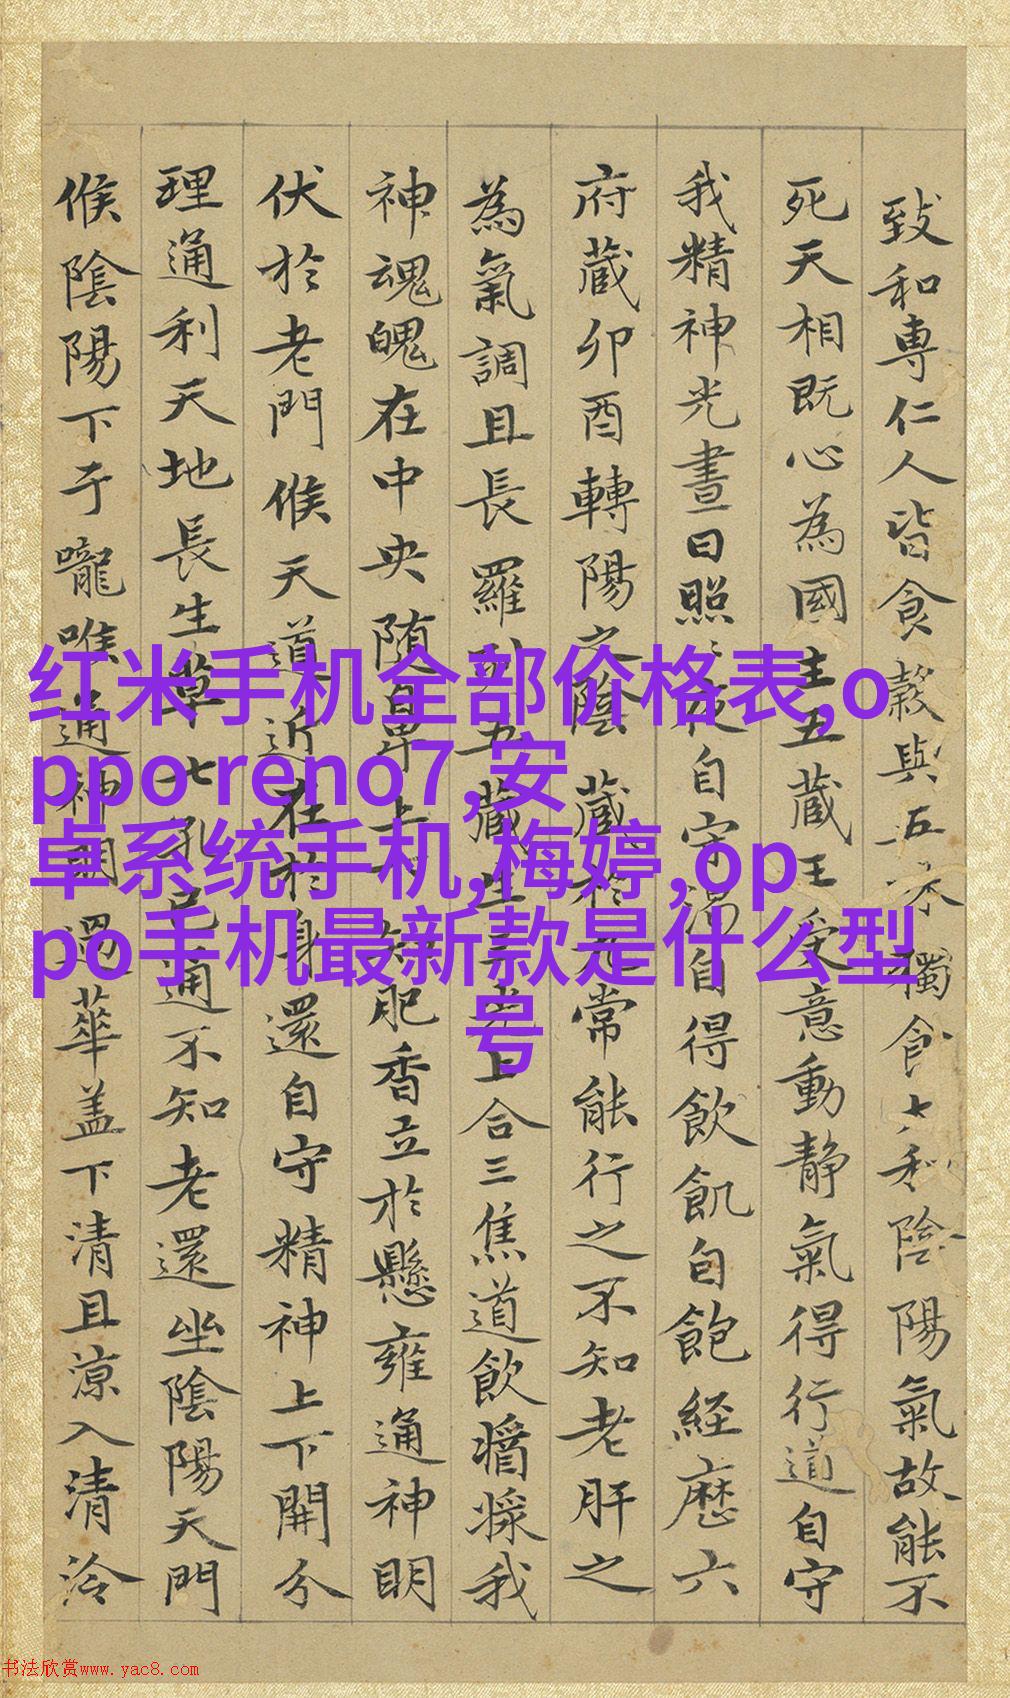 致和專仁人皆食穀與五味獨食太和陰陽氣故能不
死天相既心為國主五藏王受意動静氣得行道自守
我精神光晝日照〻夜自守渴自得飲飢自飽経歷六
府藏卯酉轉陽之陰陰藏於九常能行之不知老肝之
為氣調且長羅列五藏生三光上合三焦道飲醬漿我
神魂魄在中央随鼻上下知肥香立於懸雍通神明
伏於老門候天道近在於身還自守精神上下開分
理通利天地長生草七孔已通不知老還坐陰陽天門
候陰陽下于嚨喉通神明過華盖下清且凉入清泠
红米手机全部价格表,o
ppo reno7,安
卓系统手机,梅婷,op
po手机最新款是什么型
号
书法欣赏www.yac8.com